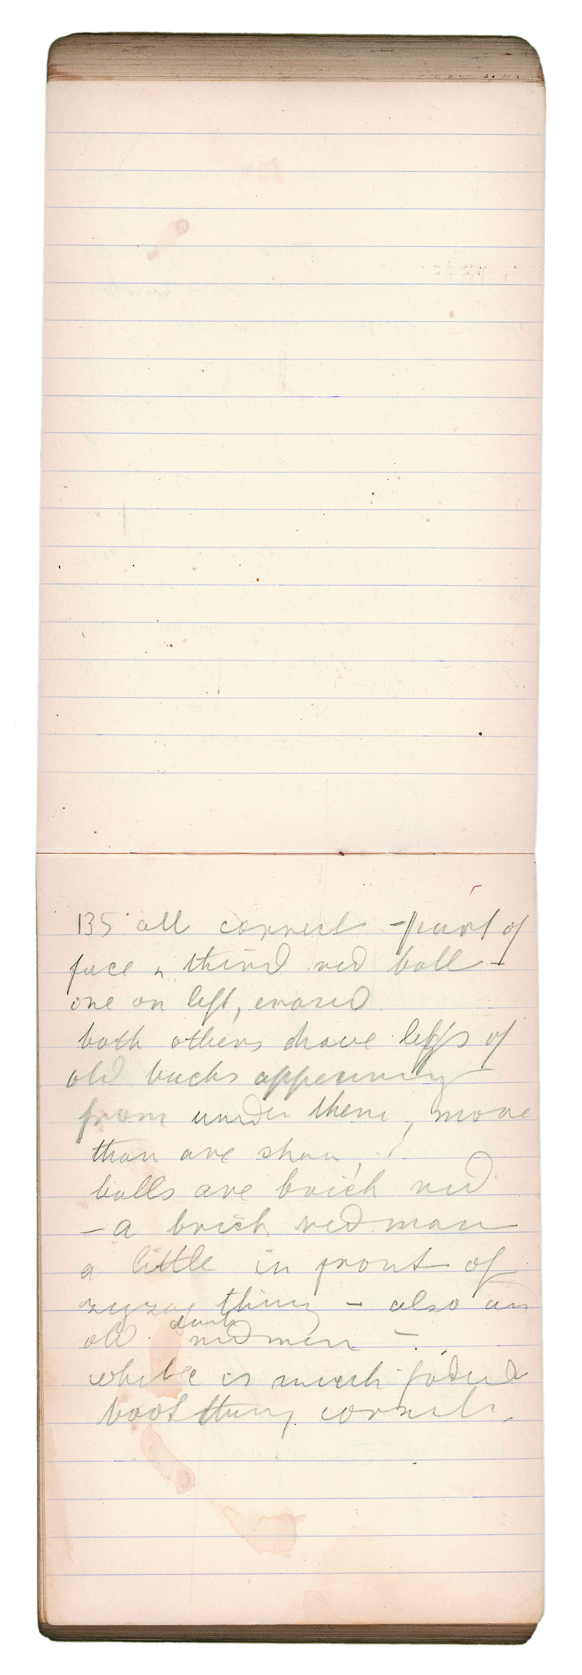 135 all correct - part of
face & third red ball -
one on left, erased
both others have legs of
old bucks appearing
from under them, more
than are shown
balls are brick red
- a brick red man
a little in front of
zigzag thing - also an
old dark red man -
white is much faded
boat thing correct.